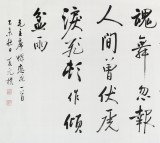 魂舞忽報
人間曾伏虎
淚飛頓作傾
盆雨
毛主席蝶戀花一首